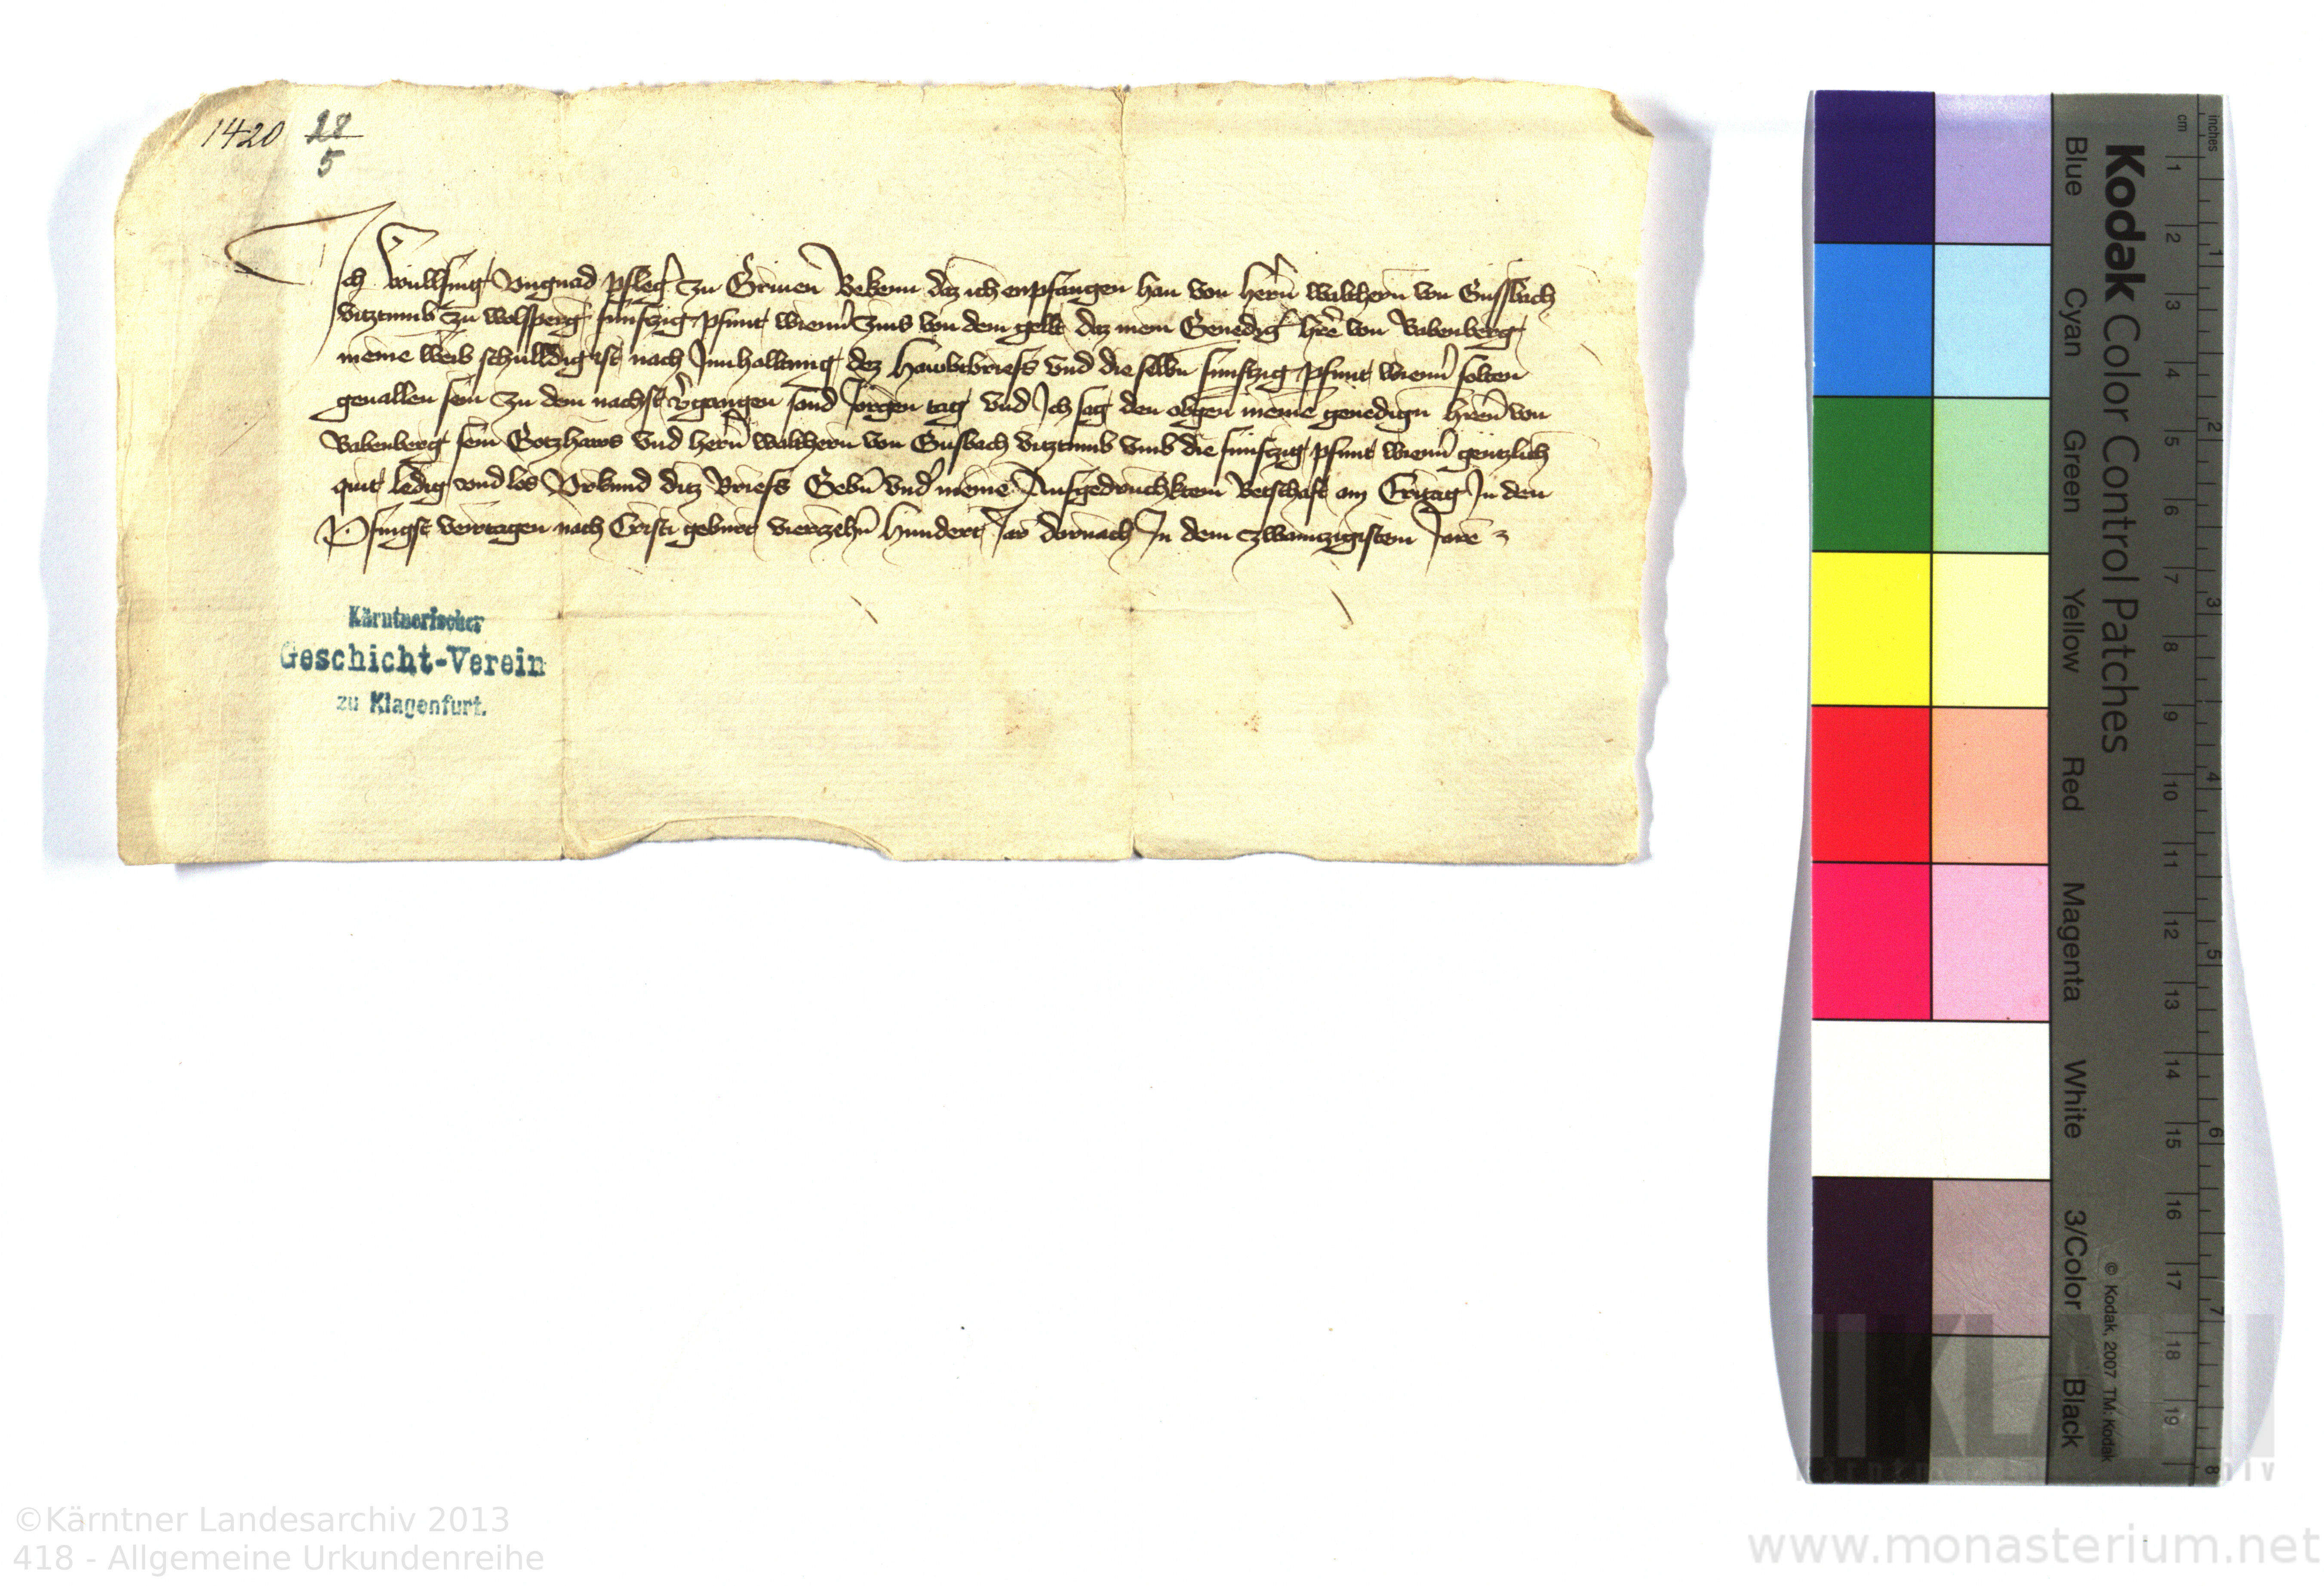 1420 28/5
Ich Wüllfing Vngnad pfleg̉ zu Griuen Bekenn daz ich enpfangen han von herrn̄ walthern von Gussbach
vitztumb zu wolfsperg fünfczig pfunt wienn̄ zins von dem gellt daz mein Genedig̉ hrē von Babenberg
meinē weib schulldig ist nach Innhalltung dez hawbtbriefs vnd die selbn fünfczig pfunt wienn̄ solten
geuallen sein zu dem nachst v̉gangen sand Jorgen tag vnd Ich sag den obgen̄ meinē genedign hrēn von
Babenberg sein Gotzhaws vnd herrn̄ walthern von Gusbach vitztumb vmb die fünfczig pfunt wienn̄ gentzlich
quit ledig vnd los Vrkund ditz briefs Gebn̄ vnd̉ meinē Aufgedruchktem Betschaft am Eritag In den
Pfingst veirtagen nach Cristi geburt vierzehn̄ hundert Jar darnach In dem zwaintzigistem Jare
Kärntnerischer
Geschicht-Verein
zu Klagenfurt.
Kodak Color Control Patches
Blue Cyan Green Yellow Red Magenta White 3/Color Black
© Kodak, 2007 TM: Kodak
cm 1 2 3 4 5 6 7 8 9 10 11 12 13 14 15 16 17 18 19
inches 1 2 3 4 5 6 7 8
©Kärntner Landesarchiv 2013
418 - Allgemeine Urkundenreihe
www.monasterium.net